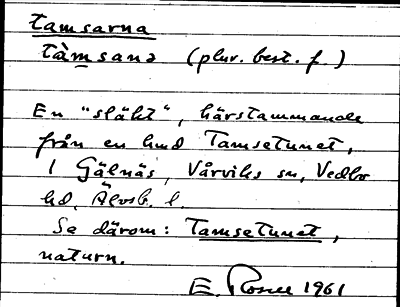 tamsarna
tàmsanə (plur. best. f.)
En "släkt", härstammande
från en hmd Tamsetunet,
i Gälnäs, Vårviks sn, Vedbo
hd, Älvsb. l.
Se därom: Tamsetunet,
naturn.
E. 1961